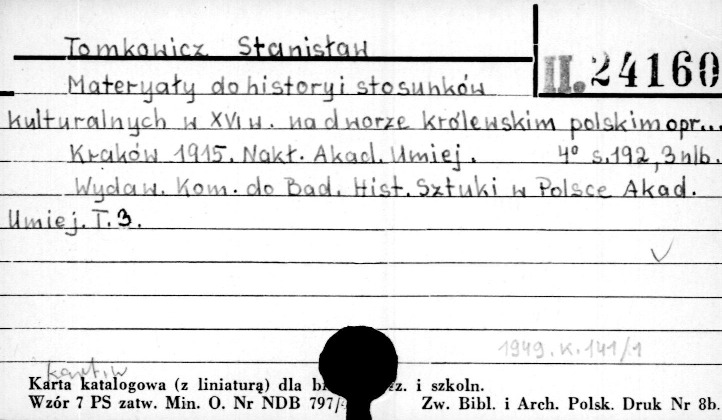 Tomkowicz Stanisław
II. 24160
Materyały do historyi stosunków
kulturalnych w XVI w. na dworze królewskim polskim opr...
Kraków 1915. Nakł. Akad. Umiej. 4° s. 192, 3 nlb.
Wydaw. Kom. do Bad. Hist. Sztuki w Polsce Akad.
Umiej. T. 3.
1949. K. 141/1
Karta katalogowa (z liniaturą) dla i szkoln.
Wzór 7 PS zatw. Min. O. Nr NDB 797/ Zw. Bibl. i Arch. Polsk. Druk Nr 8b.